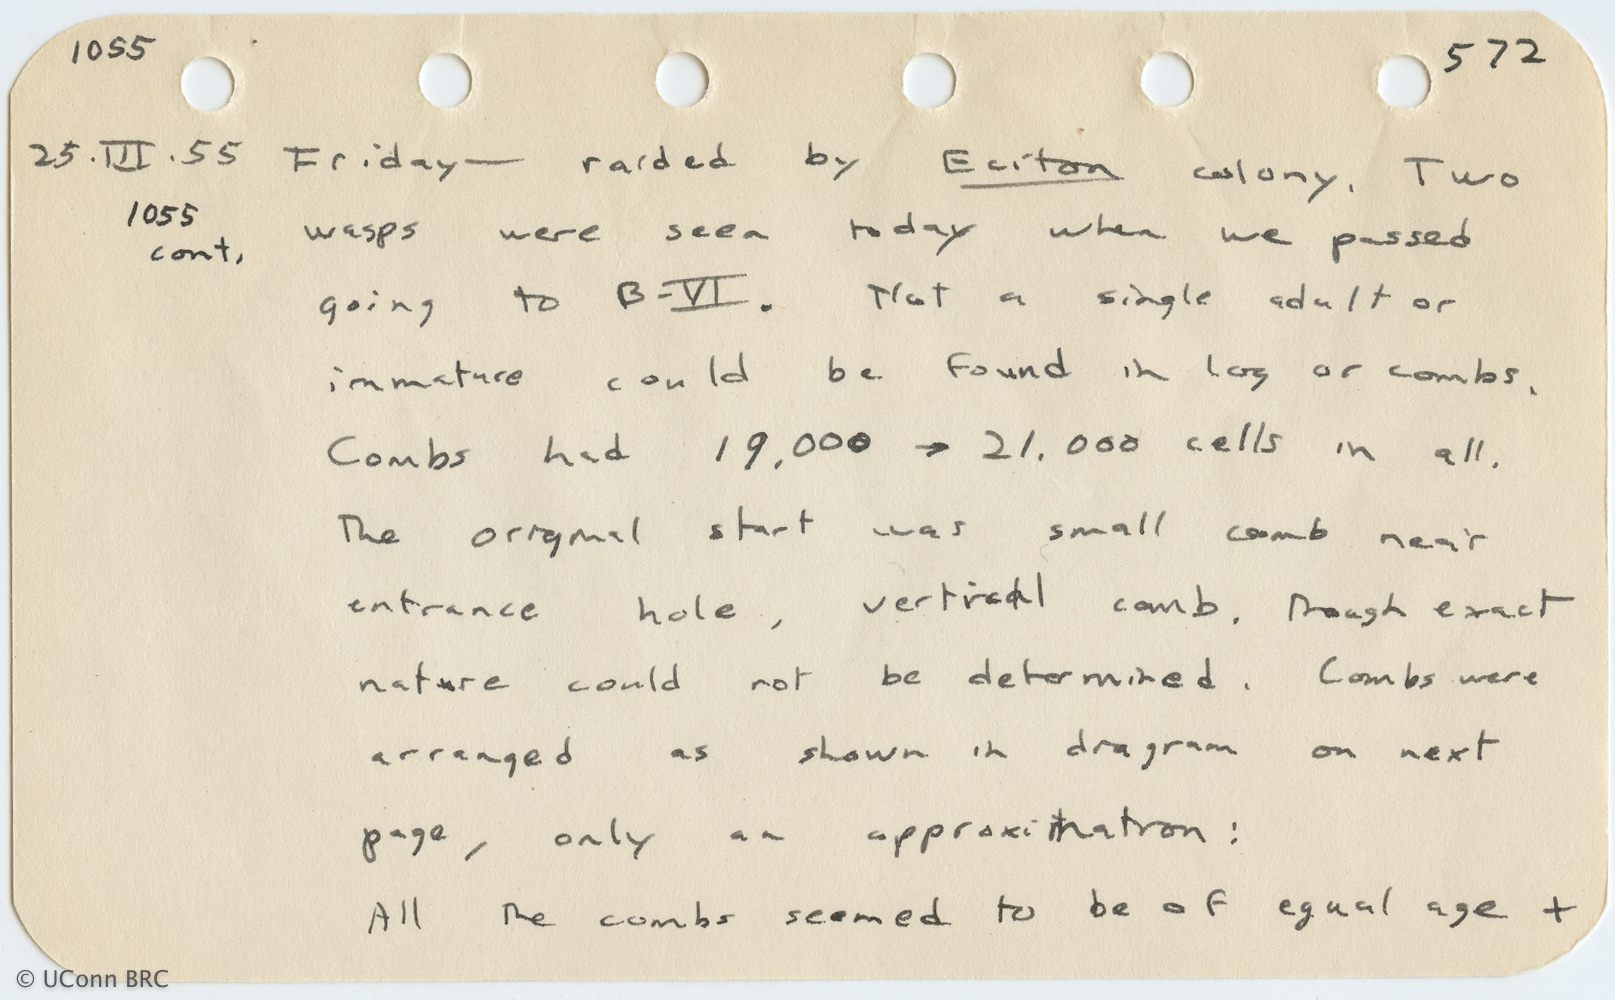 1055 572
25.III.55 Friday— raided by Eciton colony. Two
1055 wasps were seen today when we passed
cont. going to B-VI. Not a single adult or
immature could be found in log or combs.
Combs had 19,000 → 21,000 cells in all.
The original start was small comb near
entrance hole, vertical comb. Though exact
nature could not be determined. Combs were
arranged as shown in diagram on next
page, only an approximation:
All the combs seemed to be of equal age +
© UConn BRC